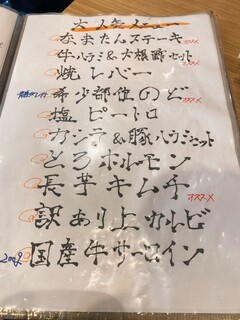 大人気メニュー
なまたんステーキ オススメ
牛ハラミ&大根酢セット
焼レバー
希少部位のど オススメ
塩ピートロ
カシラ&豚ハラミセット
とろホルモン
長芋キムチ
オススメ
訳あり上カルビ
200g 国産牛サーロイン